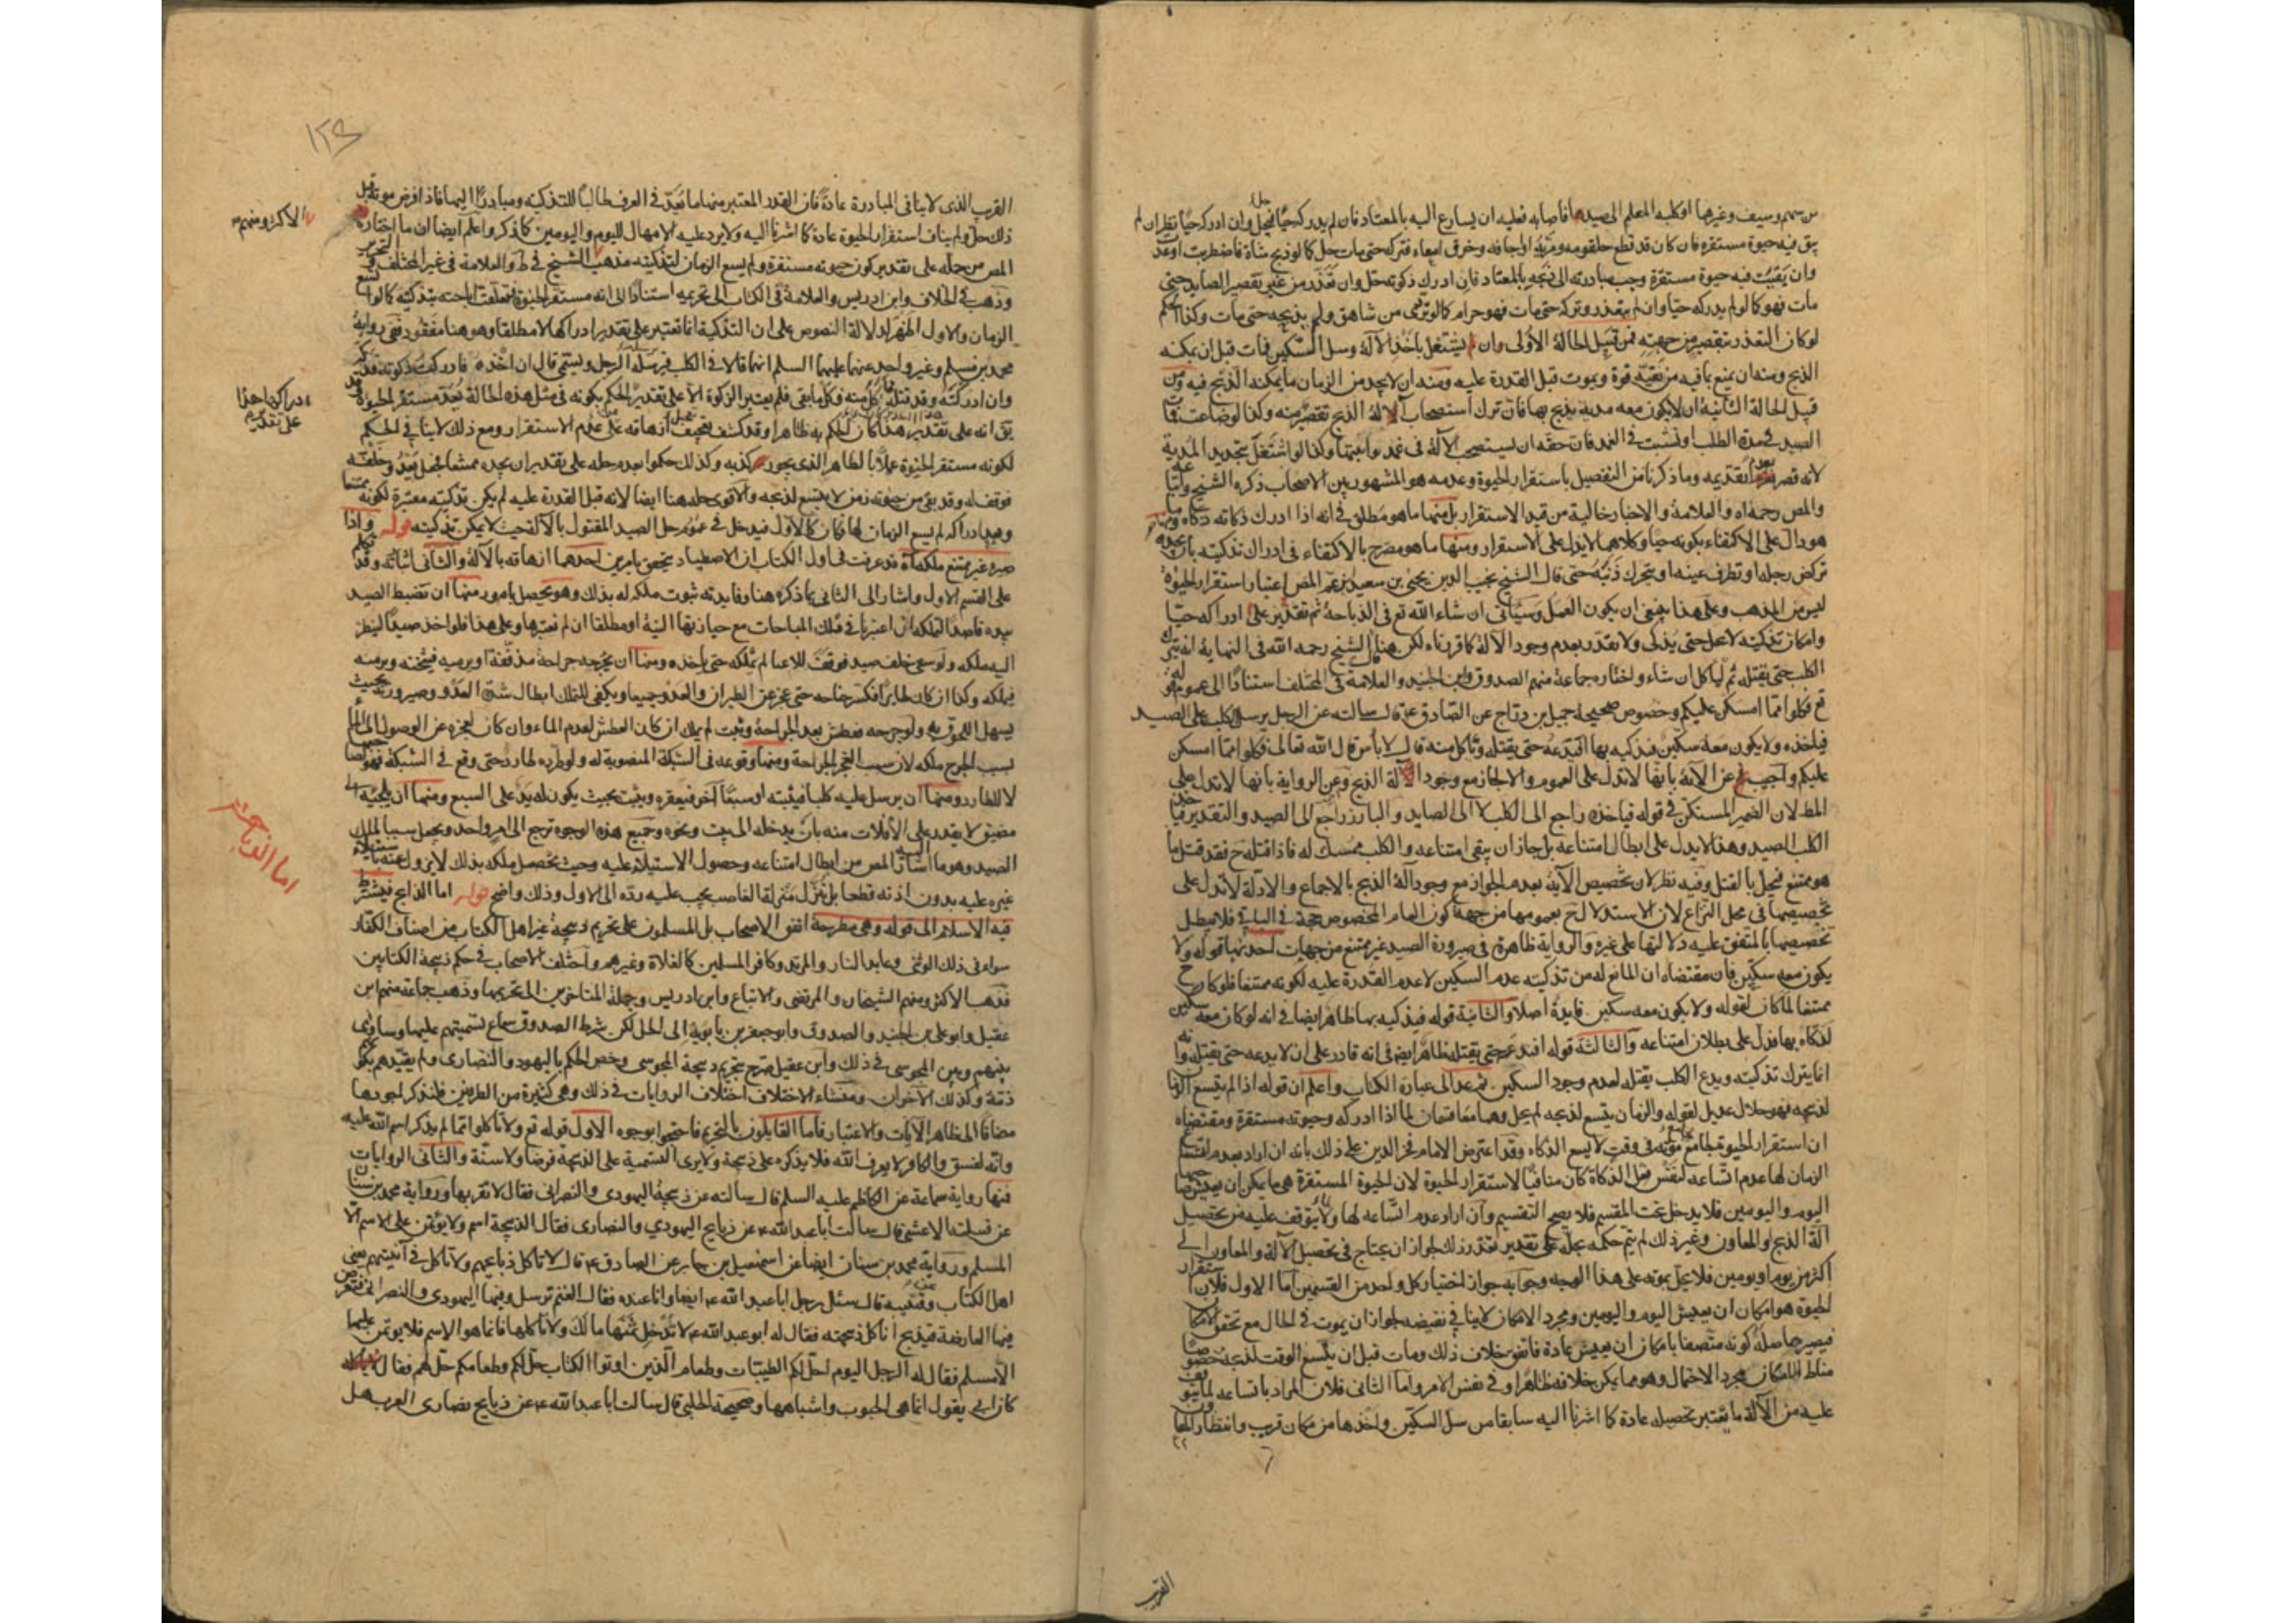 من سهم وسيف وغيرها او كلبه المعلم الى صيد فاصابه فعليه ان يسارع اليه بالمعتاد فان لم يدركه حيا حل وان ادركه حيا نظر ان لم
يبق فيه حيوة مستقرة فان كان قد قطع حلقومه ومريه او اجافه وخرق امعاءه فتركه حتى مات حل كما لو ذبح شاة فاضطربت او عدت
وان بقيت فيه حيوة مستقرة وجب مبادرته الى ذبحه بالمعتاد فان ادرك ذكوته حل وان تعذر من غير تقصير الصايد حتى
مات فهو كما لو لم يدركه حيا وان لم يتعذر وتركه حتى مات فهو حرام كما لو تردى من شاهق ولم يذبحه حتى مات وكذا الحكم
لو كان التعذر بتقصير من جهته فمن قبيل الحالة الاولى وان لم يشتغل باخذ الآلة وسل السكين فمات قبل ان يمكنه
الذبح ومنه ان يمنع بما فيه من بقية قوة ويموت قبل القدرة عليه ومنه ان لا يجد من الزمان ما يمكنه الذبح فيه ومن
قبيل الحالة الثانية ان لا يكون معه مدية يذبح بها فان ترك استصحاب آلة الذبح تقصير منه وكذا لو ضاعت فمات
الصيد في مدة الطلب او نشبت في الغمد فان حقه ان يستصحب الآلة في غمد يواتيها وكذا لو اشتغل بتحديد المدية
لانه قصر بعدم تقديمه وما ذكرنا من التفصيل باستقرار الحيوة وعدمه هو المشهور بين الاصحاب ذكره الشيخ واتباعه
والمص رحمه الله والعلامة والاخبار خالية من قيد الاستقرار بل منها ما هو مطلق في انه اذا ادرك ذكاته ذكاه ومنها ما
هو دال على الاكتفاء بكونه حيا وكلاهما لا يدل على الاستقرار ومنها ما هو مصرح بالاكتفاء في ادراك تذكيته بان يجده
تركض رجله او تطرف عينه او يتحرك ذنبه حتى قال الشيخ نجيب الدين يحيى بن سعيد بن عم المص اعتبار استقرار الحيوة
ليس من المذهب وعلى هذا ينبغي ان يكون العمل وسياتي ان شاء الله تع في الذباحة ثم تقدير على ادراكه حيا
وامكان تذكيته لا يحل حتى يذكى ولا يعذر بعدم وجود الآلة كما قررناه لكن هنا قال الشيخ رحمه الله في النهاية انه يترك
الكلب حتى يقتله ثم لياكل ان شاء واختاره جماعة منهم الصدوق وابن الجنيد والعلامة في المختلف استنادا الى عموم قوله
تع فكلوا مما امسكن عليكم وخصوص صحيحة جميل بن دراج عن الصادق ع قال سالته عن الرجل يرسل الكلب على الصيد
فياخذه ولا يكون معه سكين فيذكيه بها افيدعه حتى يقتله وياكل منه قال لا باس قال الله تعالى فكلوا مما امسكن
عليكم واجيب عن الآية بانها لا تدل على العموم والا لجاز مع وجود آلة الذبح وعن الرواية بانها لا تدل على
المط لان الضمير المستكن في قوله فياخذه راجع الى الكلب لا الى الصايد والبارز راجع الى الصيد والتقدير فياخذ
الكلب الصيد وهذا لا يدل على ابطال امتناعه بل جاز ان يبقى امتناعه والكلب ممسك له فاذا قتله ح فقد قتل ما
هو ممتنع فيحل بالقتل وفيه نظر لان تخصيص الآية بعدم الجواز مع وجود آلة الذبح بالاجماع والادلة لا تدل على
تخصيصها في محل النزاع لان الاستدلال ح بعمومها من جهة كون العام المخصوص حجة في الباقي فلا يبطل
تخصيصها بالمتفق عليه دلالتها على غيره والرواية ظاهرة في صيرورة الصيد غير ممتنع من جهات احديها قوله ولا
يكون معه سكين فان مقتضاه ان المانع له من تذكيته عدم السكين لا عدم القدرة عليه لكونه ممتنعا فلو كان ح
ممتنعا لما كان لقوله ولا يكون معه سكين فايدة اصلا والثانية قوله فيذكيه بها ظاهر ايضا في انه لو كان معه سكين
لذكاه بها فدل على بطلان امتناعه والثالثة قوله افيدعه حتى يقتله ظاهر ايضا في انه قادر على ان لا يدعه حتى يقتل وانه
انما يترك تذكيته ويدع الكلب يقتله لعدم وجود السكين ثم عد الى عبارة الكتاب واعلم ان قوله اذا لم يتسع الزمان
لذبحه فهو حلال عديل لقوله والزمان يتسع لذبحه لم يحل وهما معا قسمان لما اذا ادركه وحيوته مستقرة ومقتضاه
ان استقرار الحيوة يجامع موته في وقت لا يسع الذكاء وقد اعترض الامام فخر الدين على ذلك بانه ان اراد بعدم اتساع
الزمان لها عدم اتساعه لنفس فعل الذكاة كان منافيا لاستقرار الحيوة لان الحيوة المستقرة هي ما يمكن ان يعيش صاحبها
اليوم واليومين فلا يدخل تحت المقسم فلا يصح التقسيم وان اراد عدم اتساعه لها ولما يتوقف عليه من تحصيل
آلة الذبح والمعاون وغير ذلك لم يتم حكمه بحله على تقدير تعذر ذلك لجواز ان يحتاج في تحصيل الآلة والمعاون الى
اكثر من يوم او يومين فلا يحل بموته على هذا الوجه وجوابه جواز اختيار كل واحد من القسمين اما الاول فلان استقرار
الحيوة هو امكان ان يعيش اليوم واليومين ومجرد الامكان لا ينافي نقيضه لجواز ان يموت في الحال مع تحقق الامكان
فيصير حاصله كونه متصفا بامكان ان يعيش عادة فاتفق خلاف ذلك ومات قبل ان يتسع الوقت لذبحه خصوصا
مناط الامكان مجرد الاحتمال وهو مما يمكن خلافه ظاهرا وفي نفس الامر واما الثاني فلان المراد باتساعه لما يتوقف
عليه من الآلة ما يعتبر تحصيله عادة كما اشرنا اليه سابقا من سل السكين واخذها من مكان قريب وانتظار المعاون
القرب
١٢٩
القرب الذي لا ينافي المبادرة عادة فان القدر المعتبر منها ما يعد في العرف طالبا للتذكية ومبادرا اليها فاذا فرض موته قبل
ذلك حل ولم يناف استقرار الحيوة عادة كما اشرنا اليه ولا يرد عليه الامهال لليوم واليومين كما ذكر واعلم ايضا ان ما اختاره
المص من حله على تقدير كون حيوته مستقرة ولم يسع الزمان لتذكيته مذهب الشيخ في ط والعلامة في غير المختلف والتحرير
الاكثر ومنهم
وذهب في الخلاف وابن ادريس والعلامة في الكتاب الى تحريمه استنادا الى انه مستقر الحيوة فتعلقت اباحته بتذكيته كما لو اتسع
الزمان والاول اظهر لدلالة النصوص على ان التذكية انما تعتبر على تقدير ادراكها لا مطلقا وهو هنا مفقود ففي رواية
محمد بن مسلم وغير واحد عنهما عليهما السلم انهما قالا في الكلب يرسله الرجل ويسمي قال ان اخذه فادركت ذكوته فذكه
وان ادركته وقد قتله واكل منه فكل ما بقي فلم يعتبر الذكوة الا على تقدير الحكم بكونه في مثل هذه الحالة يعد مستقر الحيوة
ادراكها هذا
على تقديره
يق انه على تقدير هذا كان الحكم به ظاهرا وقد كشف تعجيل ازهاقه على عدم الاستقرار ومع ذلك لا ينافي الحكم
لكونه مستقر الحيوة عملا بالظاهر الذي يجوز كذبه وكذلك حكموا بعدم حله على تقدير ان يجده ممتنعا فجعل يعدو خلفه
فوقف له وقد بقي من حيوته زمن لا يتسع لذبحه والاقوى حله هنا ايضا لانه قبل القدرة عليه لم يكن تذكيته معتبرة لكونه ممتنعا
وبعد ادراكه لم يسع الزمان لها فكان كالاول فيدخل في عموم حل الصيد المقتول بالآلة حيث لا يمكن تذكيته قوله واذا
صيره غير ممتنع ملكه اه قد عرفت في اول الكتاب ان الاصطياد يتحقق بامرين احدهما ازهاقه بالآلة والثاني اثباته وقد تكلم
على القسم الاول واشار الى الثاني بما ذكره هنا وفايدته ثبوت ملكه له بذلك وهو يحصل بامور منها ان يضبط الصيد
بيده قاصدا لتملكه ان اعتبرنا في تملك المباحات مع حيازتها النية او مطلقا ان لم نعتبرها وعلى هذا فلو اخذ صيدا لينظر
اليه ملكه ولو سعى خلف صيد فوقف للاعيا لم يملكه حتى ياخذه ومنها ان يجرحه جراحة مذففة او يرميه فيثخنه ويزمنه
فيملكه وكذا ان كان طايرا فكسر جناحه حتى عجز عن الطيران والعدو جميعا ويكفي للتملك ابطال شدة العدو وصيرورته بحيث
يسهل اللحوق به ولو جرحه فعطش بعد الجراحة وثبت لم يملك ان كان العطش لعدم الماء وان كان لعجزه عن الوصول الى الماء
بسبب الجرح ملكه لان سبب العجز الجراحة ومنها وقوعه في الشبكة المنصوبة له ولو طرده طارد حتى وقع في الشبكة فهو لصاحبها
لا للطارد ومنها ان يرسل عليه كلبا فيثبته او سبعا آخر فيعقره ويثبت بحيث يكون له يد على السبع ومنها ان يلجئه الى
مضيق لا يقدر على الافلات منه بان يدخله الى بيت ونحوه وجميع هذه الوجوه ترجع الى امر واحد ويجعل سببا لملك
الصيد وهو ما اشار اليه المص من ابطال امتناعه وحصول الاستيلاء عليه وحيث تحصل ملكه بذلك لا يزول عنه باستيلاء
اما الذباحة
غيره عليه بدون اذنه قطعا بل تنزل منزلة الغاصب يجب عليه رده الى الاول وذلك واضح قوله اما الذابح فيشترط
فيه الاسلام الى قوله وهي مطرحة اتفق الاصحاب بل المسلمون على تحريم ذبيحة غير اهل الكتاب من اصناف الكفار
سواء في ذلك الوثني وعابد النار والمرتد وكافر المسلمين كالغلاة وغيرهم واختلف الاصحاب في حكم ذبيحة الكتابيين
فذهب الاكثر ومنهم الشيخان والمرتضى والاتباع وابن ادريس وجملة المتاخرين الى تحريمها وذهب جماعة منهم ابن
عقيل وابو علي بن الجنيد والصدوق وابو جعفر بن بابويه الى الحل لكن شرط الصدوق سماع تسميتهم عليها وساوى
بينهم وبين المجوسي في ذلك وابن عقيل صرح بتحريم ذبيحة المجوسي وخص الحكم باليهود والنصارى ولم يقيدهم بكونهم
ذمة وكذلك الآخران ومنشاء الاختلاف اختلاف الروايات في ذلك وهي كثيرة من الطرفين فلنذكر اجودها
مضافا الى ظاهر الآيات والاعتبار فاما القايلون بالتحريم فاحتجوا بوجوه الاول قوله تع ولا تاكلوا مما لم يذكر اسم الله عليه
وانه لفسق والكافر لا يعرف الله فلا يذكره على ذبيحة ولا يرى التسمية على الذبيحة فرضا ولا سنة والثاني الروايات
فمنها رواية سماعة عن الكاظم عليه السلم قال سالته عن ذبيحة اليهودي والنصراني فقال لا تقربها ورواية محمد بن سنان
عن قتيبة الاعشى قال سالت ابا عبد الله ع عن ذبايح اليهودي والنصارى فقال الذبيحة اسم ولا يؤمن على الاسم الا
المسلم ورواية محمد بن سنان ايضا عن اسمعيل بن جابر عن الصادق ع قال لا تاكل ذبايحهم ولا تاكل في آنيتهم يعني
اهل الكتاب وعن قتيبة قال سئل رجل ابا عبد الله ع ايضا وانا عنده فقال الغنم ترسل وفيها اليهودي والنصراني فتعرض
فيها العارضة فيذبح اناكل ذبيحته فقال له ابو عبد الله ع لا تدخل ثمنها مالك ولا تاكلها فانما هو الاسم فلا يؤمن عليها
الا مسلم فقال له الرجل اليوم احل لكم الطيبات وطعام الذين اوتوا الكتاب حل لكم وطعامكم حل لهم فقال
كان ابي يقول انما هي الحبوب واشباهها وصحيحة الحلبي قال سالت ابا عبد الله ع عن ذبايح نصارى العرب هل